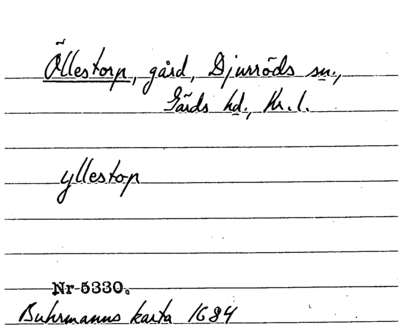 Öllestorp, gård, Djurröds sn.,
Gärds hd., Kr.l.
yllestop
Nr 5330.
Buhrmanns karta 1684